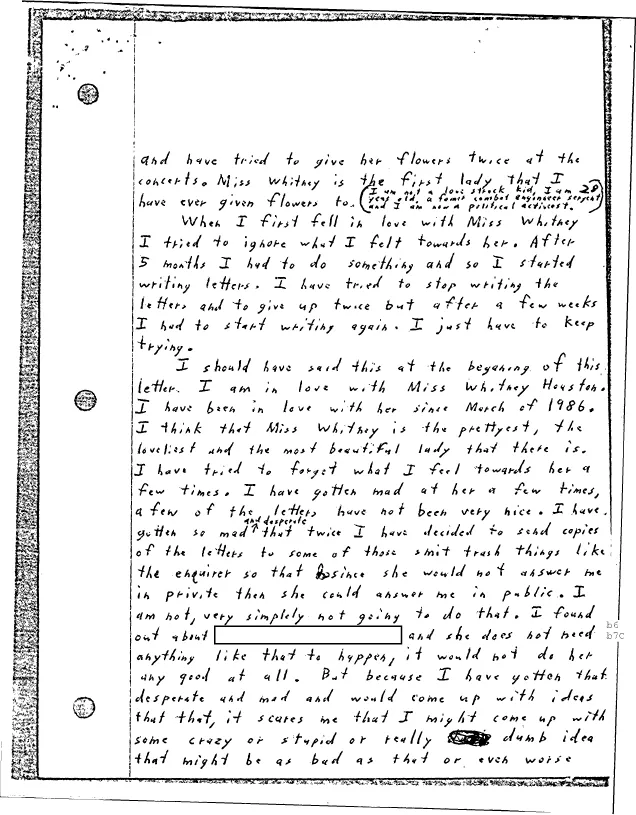 and have tried to give her flowers twice at the
concerts. Miss Whitney is the first lady that I
(I am not a love struck kid, I am 28
have ever given flowers to. years old, a former combat engineer sergent
and I am now a political activist.)
When I first fell in love with Miss Whitney
I tried to ignore what I felt towards her. After
5 months I had to do something and so I started
writing letters. I have tried to stop writing the
letters and to give up twice but after a few weeks
I had to start writing again. I just have to keep
trying.
I should have said this at the beganing of this
letter. I am in love with Miss Whitney Houston.
I have been in love with her since March of 1986.
I think that Miss Whitney is the prettyest, the
loveliest and the most beautiful lady that there is.
I have tried to forget what I feel towards her a
few times. I have gotten mad at her a few times,
a few of the letters have not been very nice. I have
and desperate
gotten so mad ^ that twice I have decided to send copies
of the letters to some of those smit trash things like
the enquirer so that since she would not answer me
in privite then she could answer me in public. I
am not, very simplely not going to do that. I found
out about and she does not need
b6
b7C
anything like that to happen, it would not do her
any good at all. But because I have gotten that
desperate and mad and would come up with ideas
that that, it scares me that I might come up with
some crazy or stupid or really dumb idea
that might be as bad as that or even worse